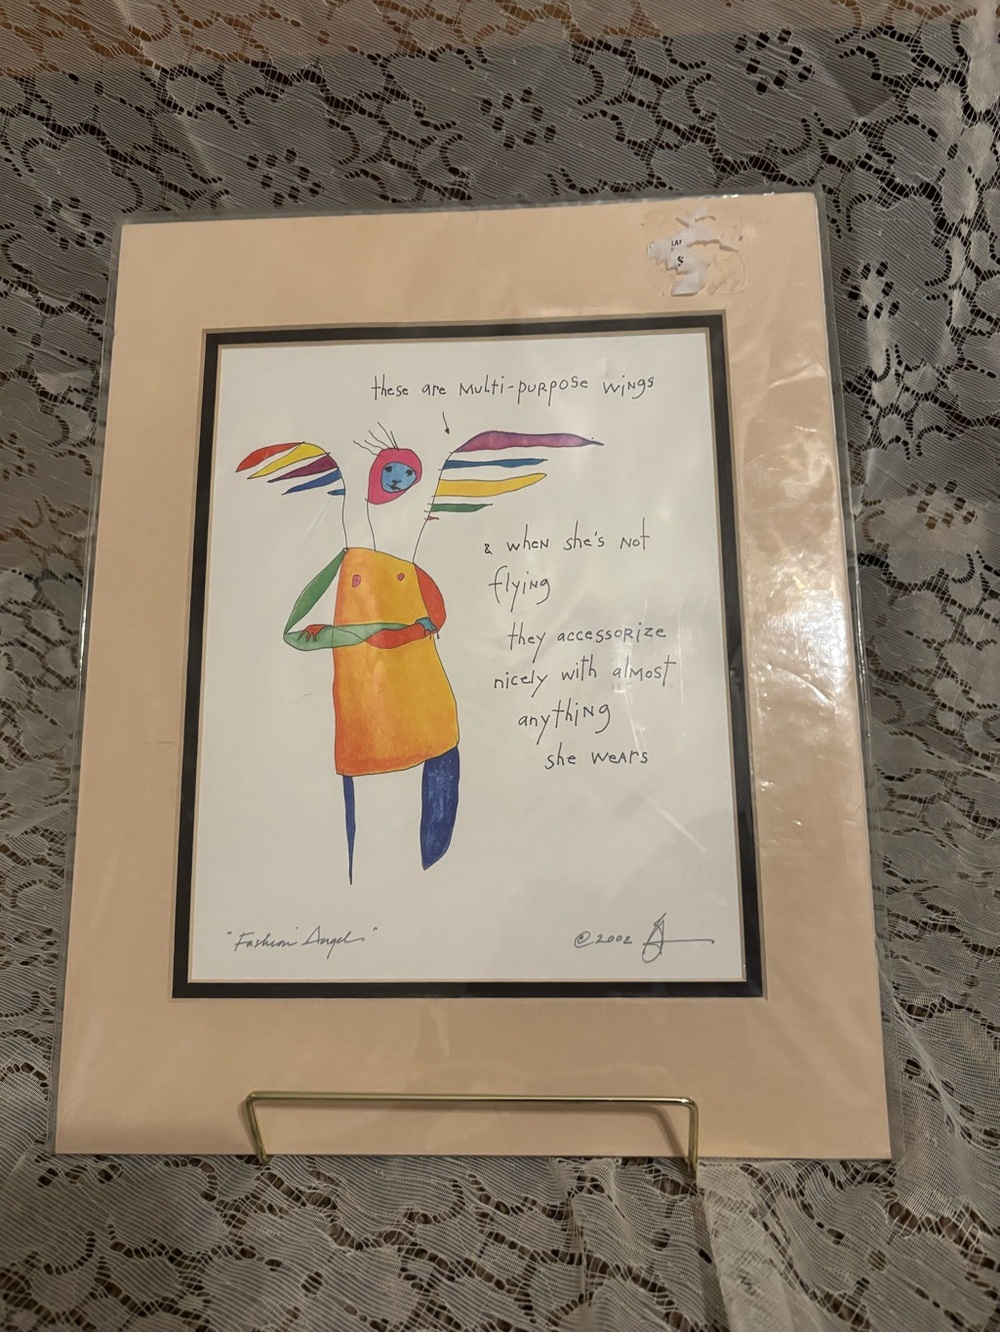 these are Multi-purpose wings
& when she's not
flying
they accessorize
nicely with almost
anything
she wears
"Fashion Angel"
© 2002